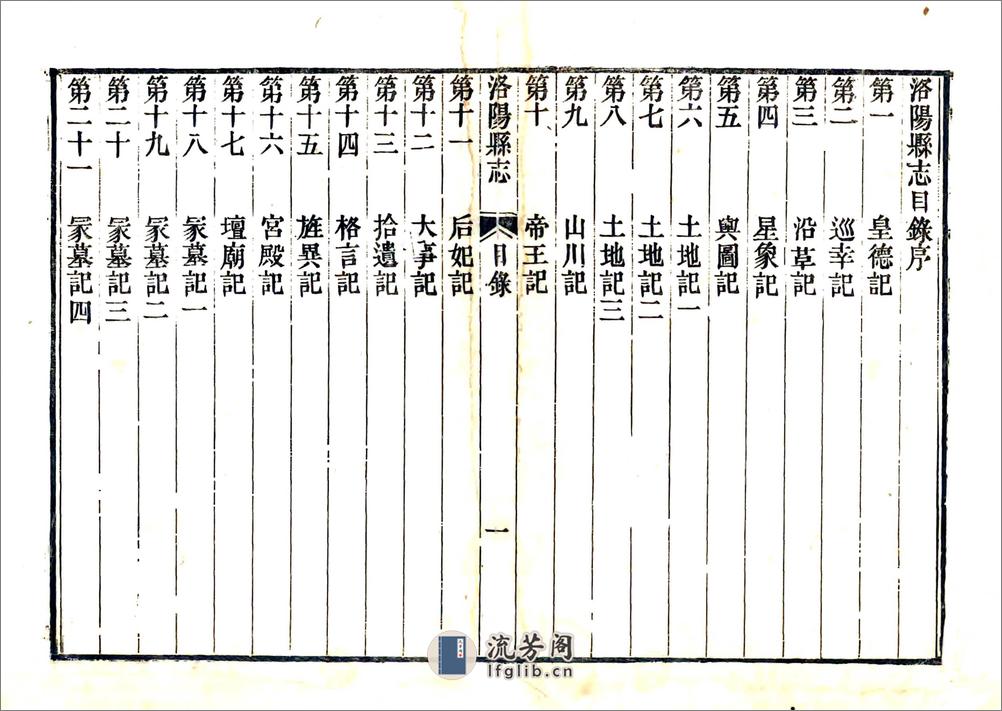 洛陽縣志目錄序
第一 皇德記
第二 巡幸記
第三 沿革記
第四 星象記
第五 輿圖記
第六 土地記一
第七 土地記二
第八 土地記三
第九 山川記
第十 帝王記
洛陽縣志 目錄 一
第十一 后妃記
第十二 大事記
第十三 拾遺記
第十四 格言記
第十五 旌異記
第十六 宮殿記
第十七 壇廟記
第十八 冢墓記一
第十九 冢墓記二
第二十 冢墓記三
第二十一 冢墓記四
流芳阁
lfglib.cn